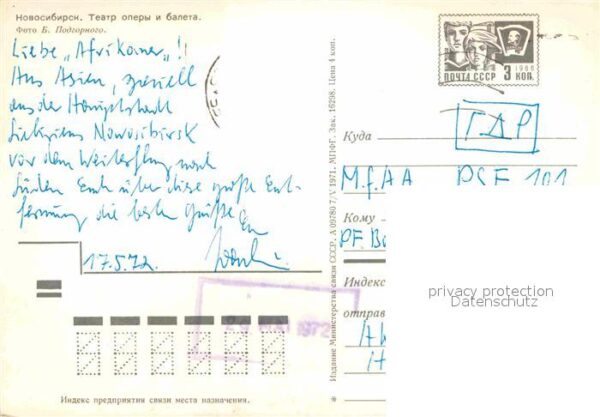 Новосибирск. Театр оперы и балета.
Фото Б. Подгорного.
Liebe „Afrikaner"!
Aus Asien, speziell
aus der Hauptstadt
Sibiriens Nowosibirsk
vor dem Weiterflug nach
Süden Euch über diese große Ent-
fernung die besten Grüße
17.5.72.
ПОЧТА СССР 3 КОП.
1968
Куда
ГДР
M.f.AA PSF 101
Кому
PF. Be
Индекс
отправ
privacy protection
Datenschutz
29 MAI 1972
Издание Министерства связи СССР. А 09780 7/V 1971. МПФГ. Зак. 16298. Цена 4 коп.
Индекс предприятия связи места назначения.